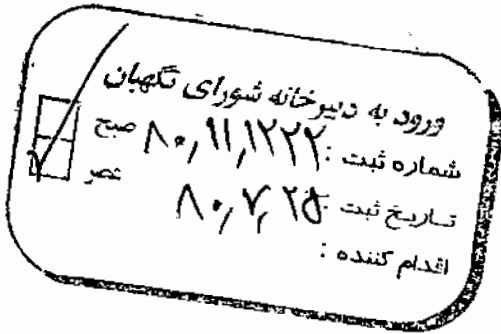 ورود به دبیرخانه شورای نگهبان
شماره ثبت : ۸۰٫۹۱٫۱۲۲۲ صبح
تاریخ ثبت : ۸۰٫۷٫۲۵ عصر
اقدام کننده :